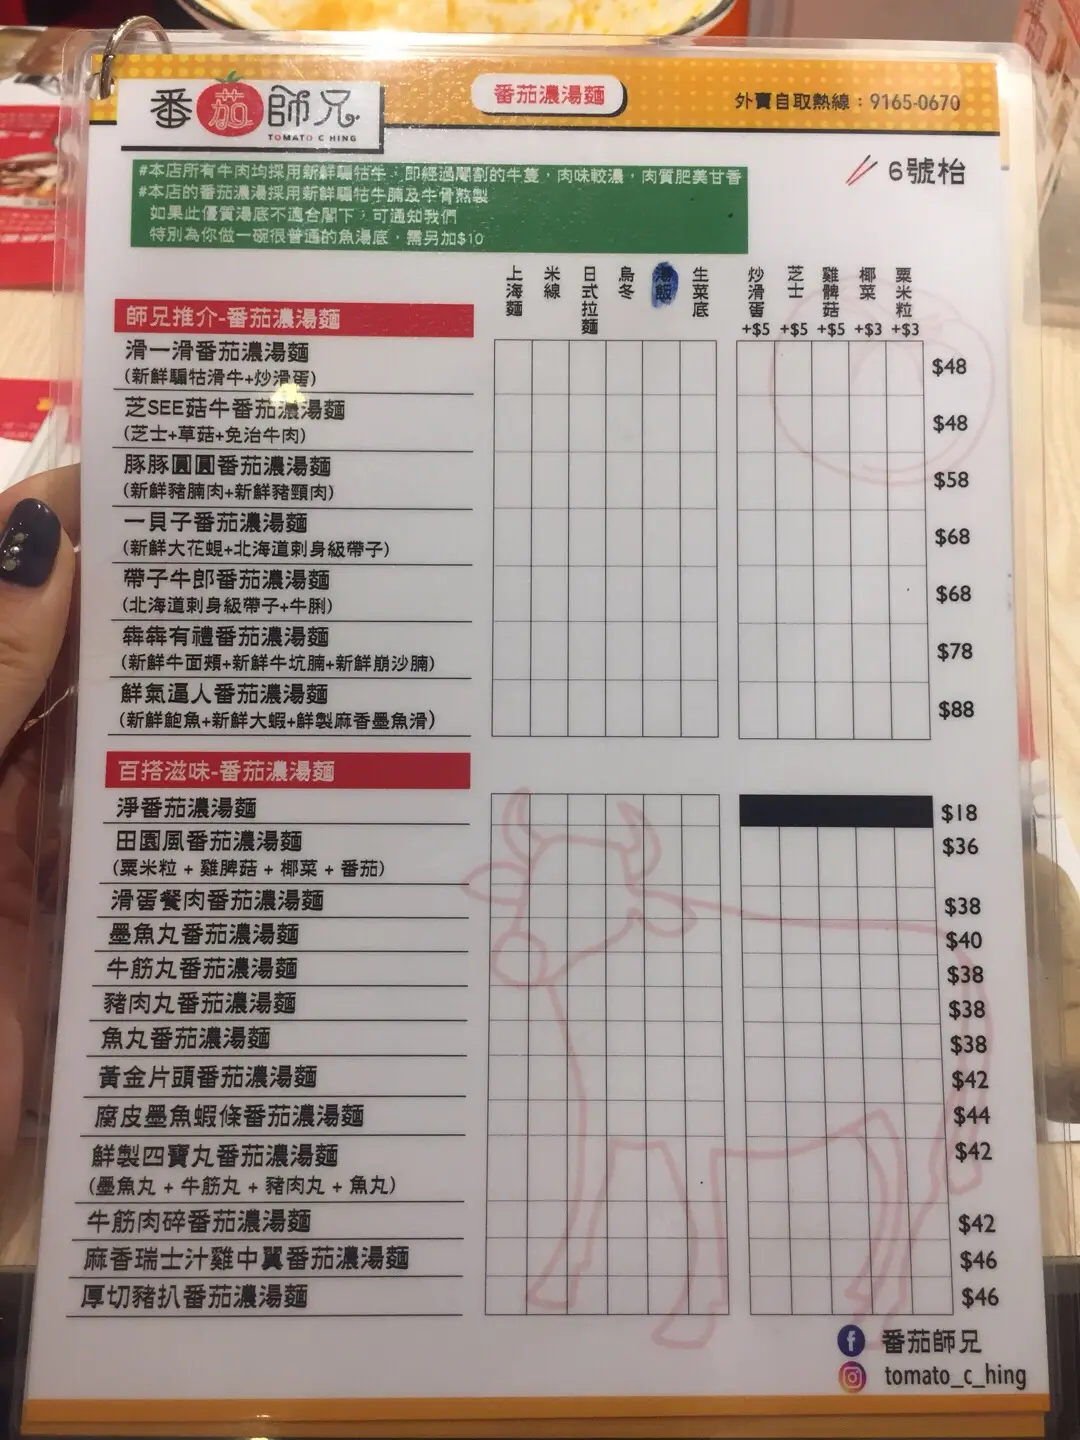 番茄師兄
TOMATO C HING
番茄濃湯麵
外賣自取熱線：9165-0670
#本店所有牛肉均採用新鮮騸牯牛，即經過閹割的牛隻，肉味較濃，肉質肥美甘香
#本店的番茄濃湯採用新鮮騸牯牛腩及牛骨熬製
如果此優質湯底不適合閣下，可通知我們
特別為你做一碗很普通的魚湯底，需另加$10
6號枱
上海麵 米線 日式拉麵 烏冬 湯飯 生菜底 炒滑蛋 芝士 雞髀菇 椰菜 粟米粒
+$5 +$5 +$5 +$3 +$3
師兄推介-番茄濃湯麵
滑一滑番茄濃湯麵 $48
(新鮮騸牯滑牛+炒滑蛋)
芝SEE菇牛番茄濃湯麵 $48
(芝士+草菇+免治牛肉)
豚豚圓圓番茄濃湯麵 $58
(新鮮豬腩肉+新鮮豬頸肉)
一貝子番茄濃湯麵 $68
(新鮮大花蜆+北海道刺身級帶子)
帶子牛郎番茄濃湯麵 $68
(北海道刺身級帶子+牛脷)
犇犇有禮番茄濃湯麵 $78
(新鮮牛面頰+新鮮牛坑腩+新鮮崩沙腩)
鮮氣逼人番茄濃湯麵 $88
(新鮮鮑魚+新鮮大蝦+鮮製麻香墨魚滑)
百搭滋味-番茄濃湯麵
淨番茄濃湯麵 $18
田園風番茄濃湯麵 $36
(粟米粒 + 雞髀菇 + 椰菜 + 番茄)
滑蛋餐肉番茄濃湯麵 $38
墨魚丸番茄濃湯麵 $40
牛筋丸番茄濃湯麵 $38
豬肉丸番茄濃湯麵 $38
魚丸番茄濃湯麵 $38
黃金片頭番茄濃湯麵 $42
腐皮墨魚蝦條番茄濃湯麵 $44
鮮製四寶丸番茄濃湯麵 $42
(墨魚丸 + 牛筋丸 + 豬肉丸 + 魚丸)
牛筋肉碎番茄濃湯麵 $42
麻香瑞士汁雞中翼番茄濃湯麵 $46
厚切豬扒番茄濃湯麵 $46
番茄師兄
tomato_c_hing